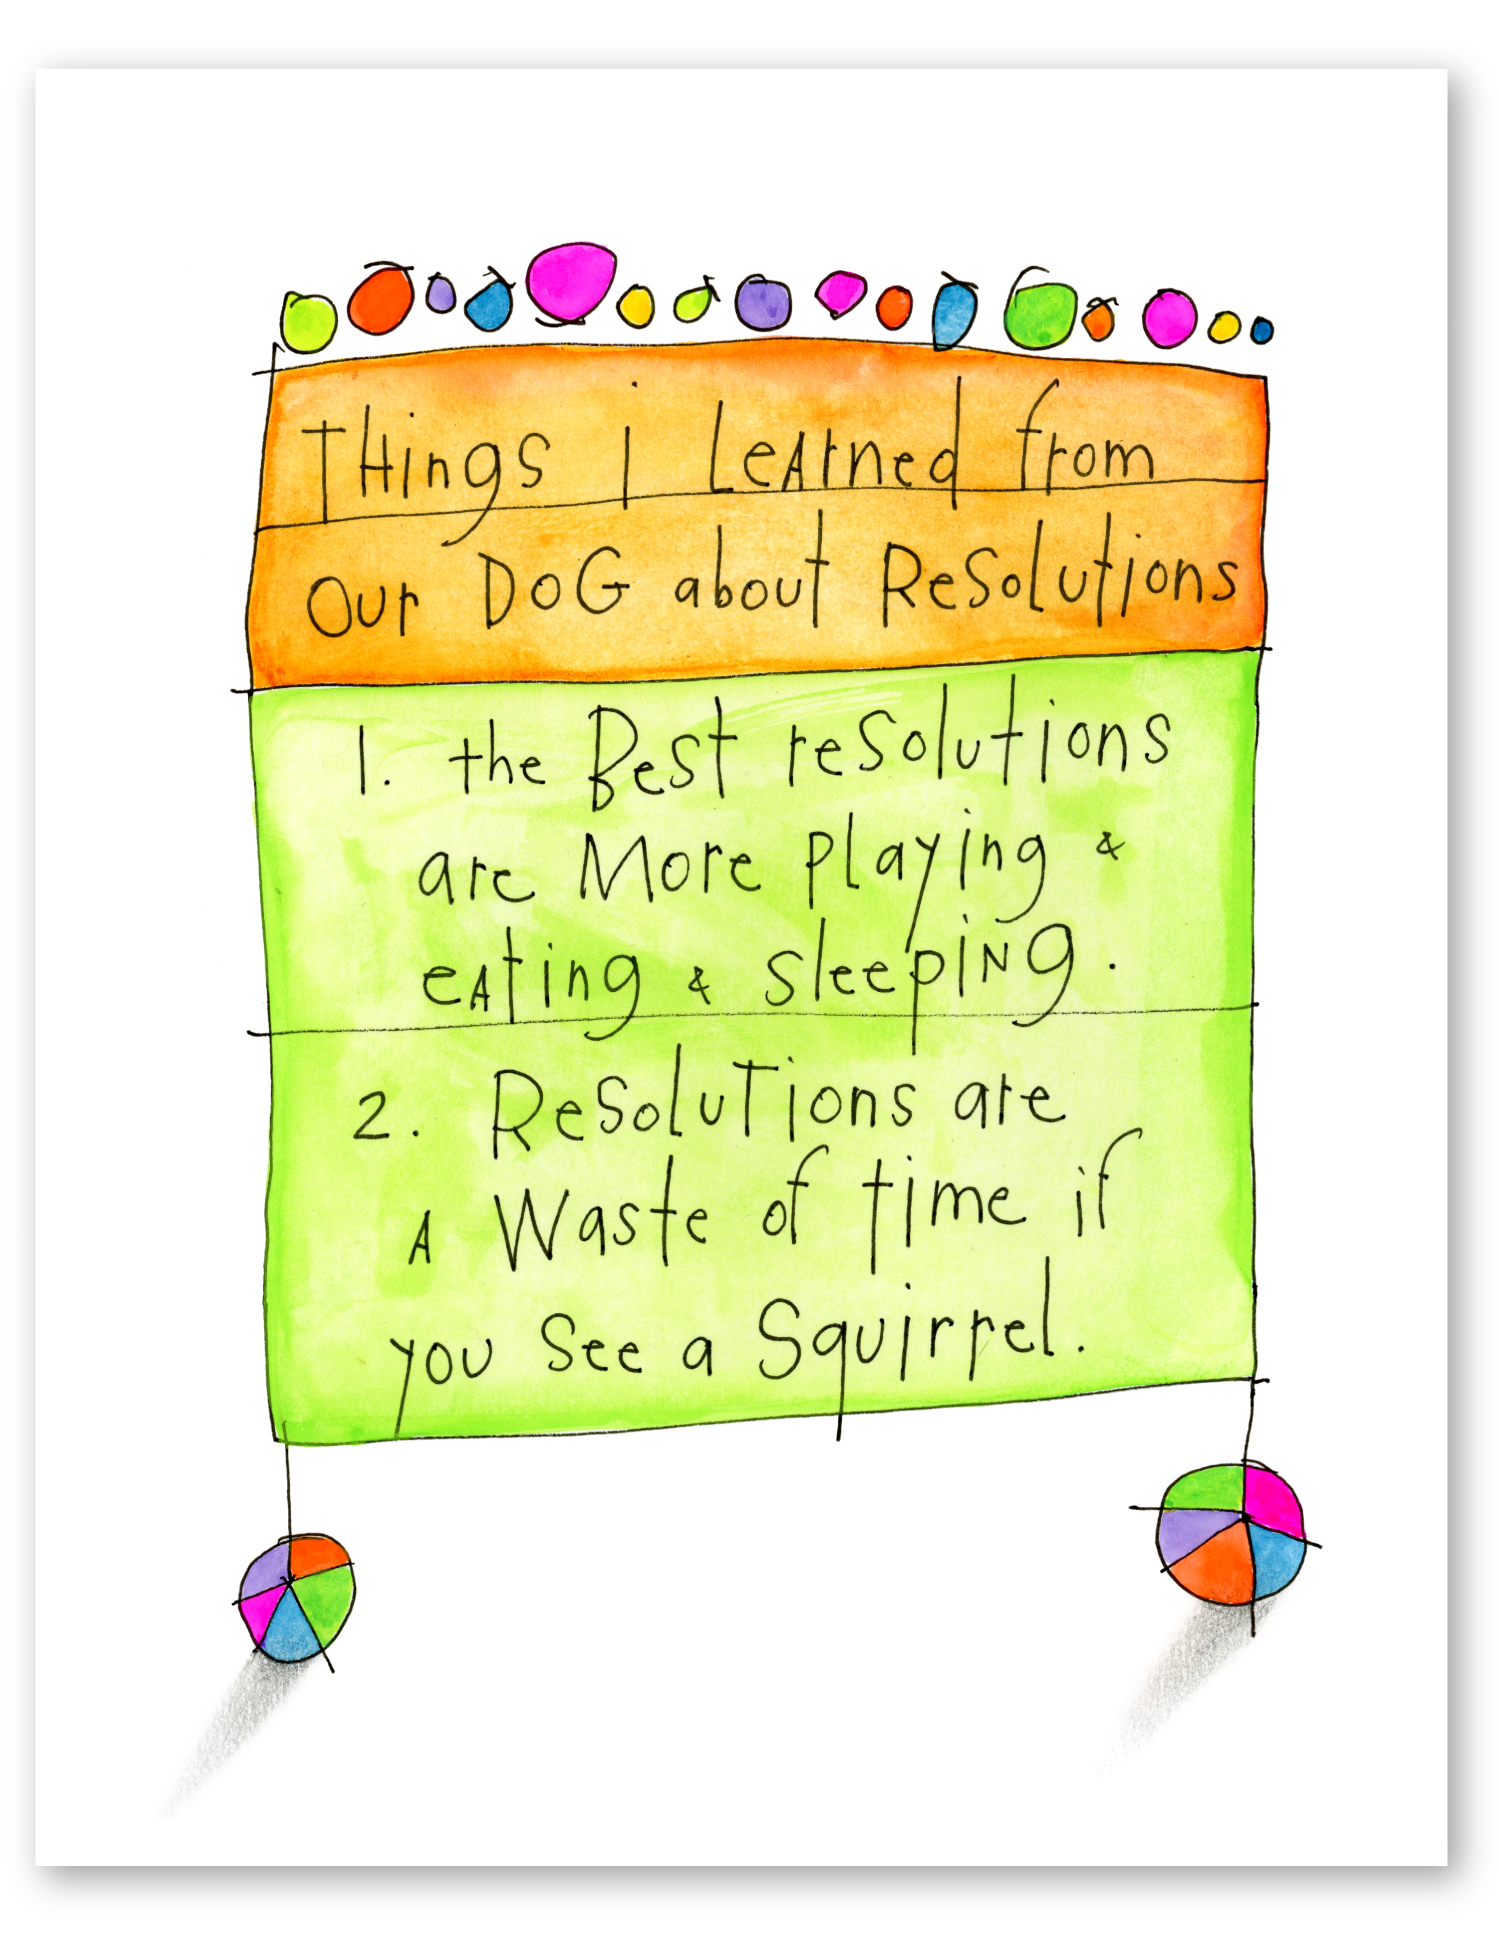 THings i LeArned from
our DoG about ReSolutions
1. the BeST reSolutions
are More playing &
eAting & sleepiNg.
2. ReSoluTions are
A Waste of time if
you See a Squirrel.